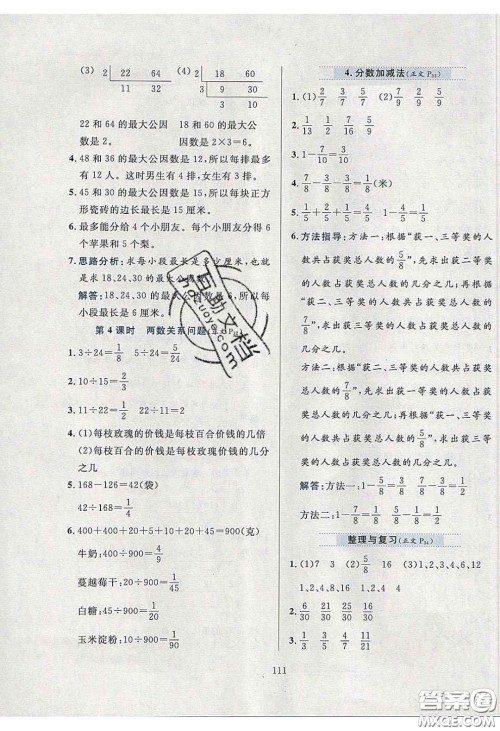 (3) 2 22 64 (4) 2 18 60
11 32 3 9 30
3 10
22 和 64 的最大公因 18 和 60 的最大公因
数是 2。 数是 2×3=6。
4. 48 和 36 的最大公因数是 12,所以每排最多
有 12 人。这时男生有 4 排,女生有 3 排。
5. 45 和 30 的最大公因数是 15,所以每块正方
形瓷砖的边长最长是 15 厘米。
6. 最多能分给 4 个小朋友。每个小朋友分得 6
个苹果和 5 个梨。
7. 思路分析:求每小段最长是多少厘米,就是求
18、24、30 的最大公因数。
解答:18、24、30 的最大公因数是 6,所以每
小段最长是 6 厘米。
第 4 课时 两数关系问题
1. 3÷24=3/24=1/8
2. 10÷15=2/3
3. 11÷22=11/22=1/2
4. (1)每枝玫瑰的价钱是每枝百合价钱的几倍
(2)每枝百合的价钱是每枝玫瑰价钱的几分
之几
5. 168-126=42(袋)
42÷168=1/4
6. 400+400+45+20+25+10=900(克)
牛奶:400÷900=4/9
蔓越莓干:20÷900=1/45
白糖:45÷900=1/20
玉米淀粉:10÷900=1/90
4. 分数加减法(正文 P33)
1. (1) 2/7 3/7 5/7 (2) 7/9 2/9 5/9
2. 1/13 1/2 4/15 5/16
3. 1-7/10=3/10
4. 7/8-3/8-1/8=3/8(米)
5. 1/5+2/5+1/5=4/5
6. 方法指导:方法一:根据“获一、三等奖的人
数共占获奖总人数的5/8”,求出获二等奖的
人数占获奖总人数的几分之几;再根据“获
二、三等奖的人数共占获奖总人数的7/8”,求
出获三等奖的人数占获奖总人数的几分之几。
方法二:根据“获二、三等奖的人数共占获奖
总人数的7/8”,求出获一等奖的人数占获奖
总人数的几分之几;再根据“获一、三等奖的
人数共占获奖总人数的5/8”,求出获三等奖
的人数占获奖总人数的几分之几。
解答:方法一:1-5/8=3/8 7/8-3/8=4/8
方法二:1-7/8=1/8 5/8-1/8=4/8
整理与复习(正文 P34)
1. (1)7 3 (2)5/8 16 (3)1,2,3,4,6,12
1,2,4,8,16 1,2,4
2. 16/30 21/30 25/30
111
互助文档
hdzuoye.com
答案圈
MXQE.COM